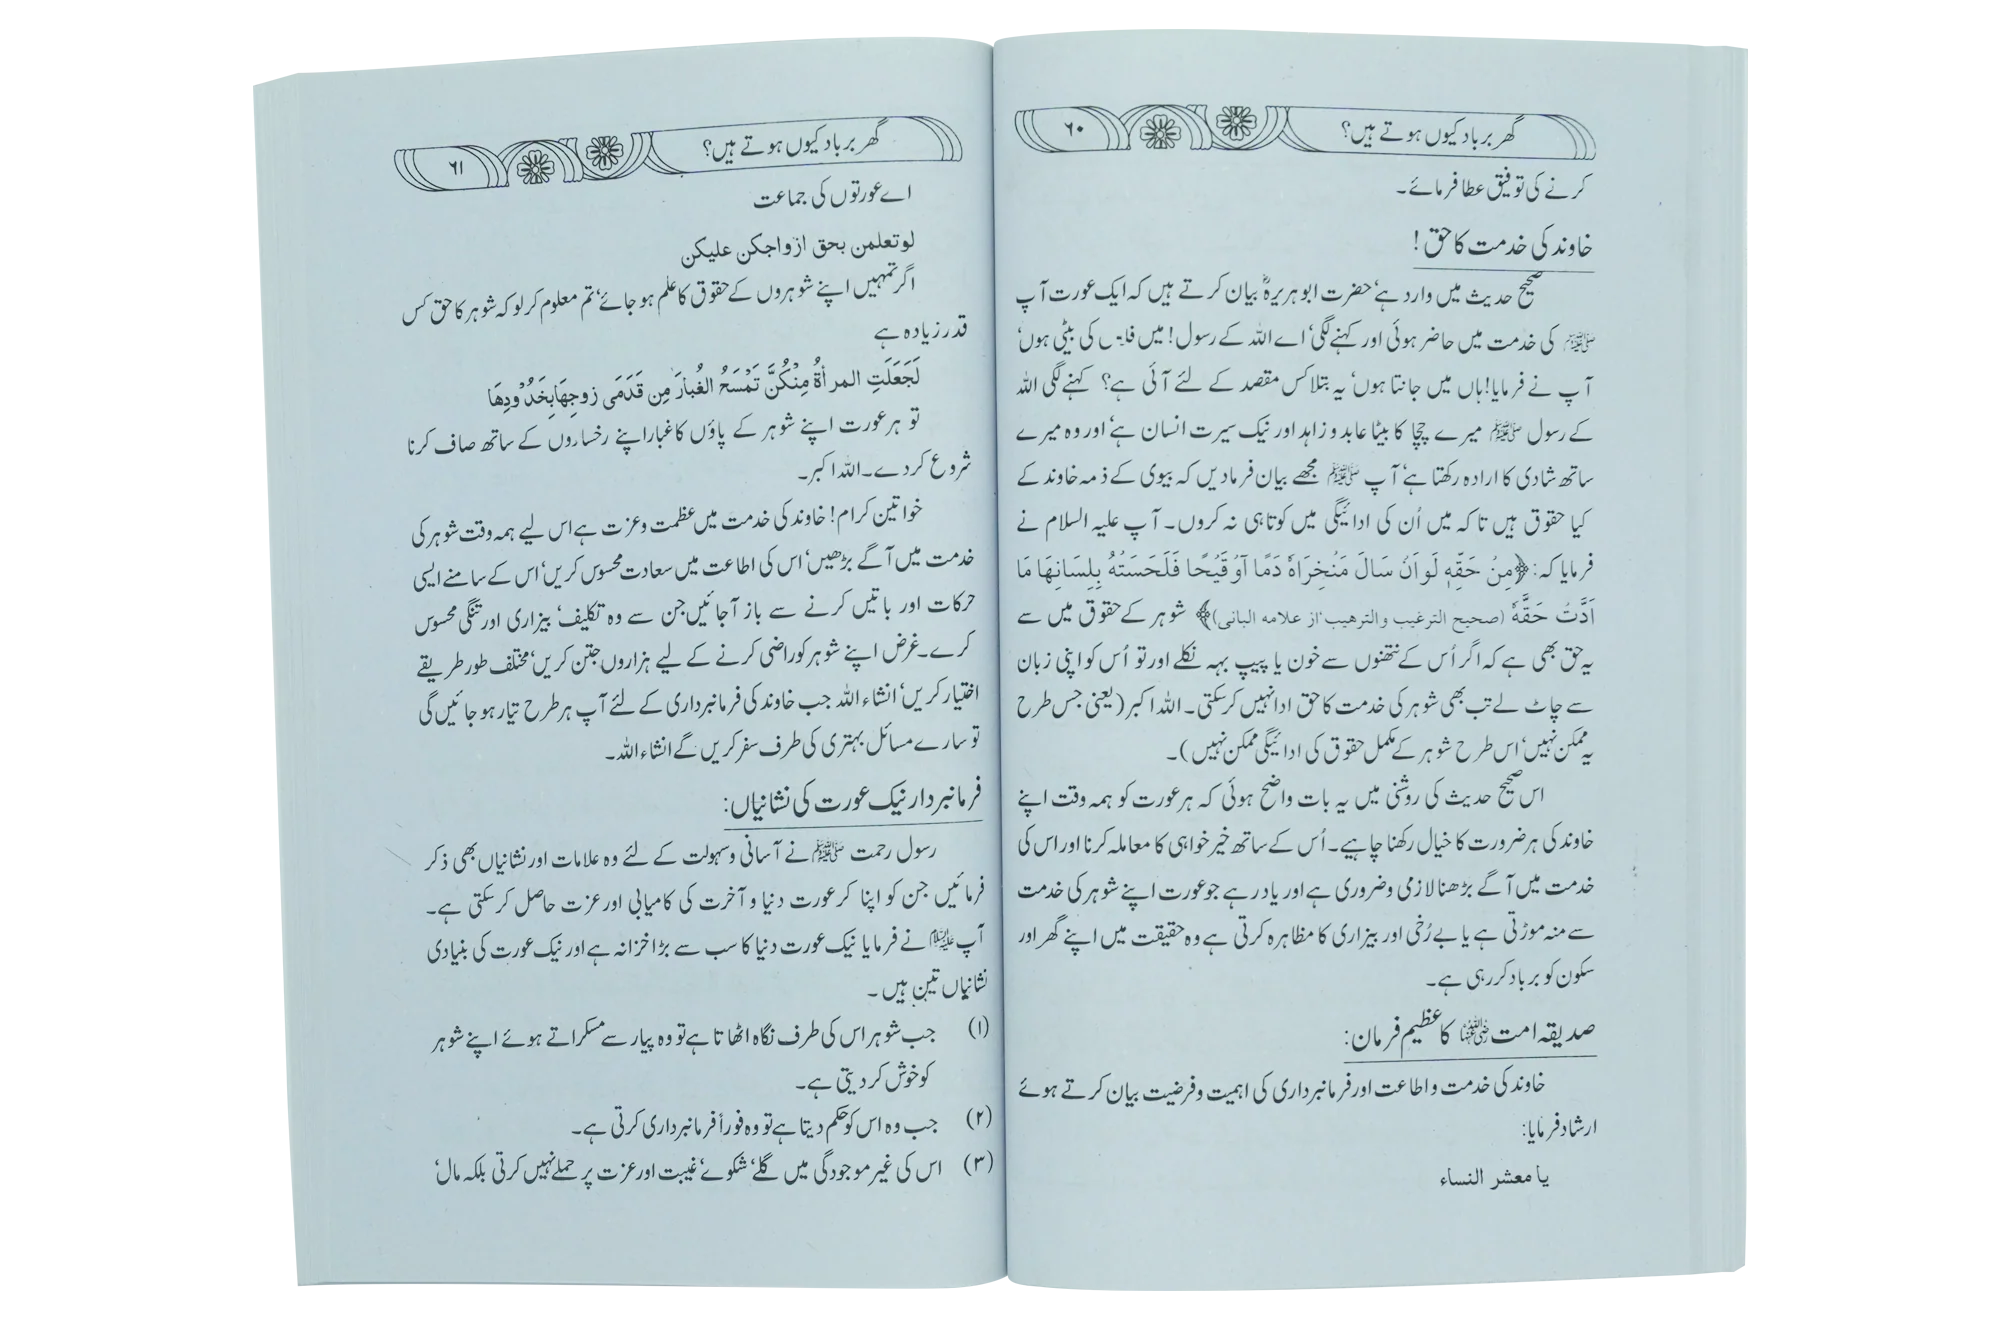 گھر برباد کیوں ہوتے ہیں؟
۶۰
کرنے کی توفیق عطا فرمائے۔
خاوند کی خدمت کا حق!
صحیح حدیث میں وارد ہے‘ حضرت ابو ہریرہؓ بیان کرتے ہیں کہ ایک عورت آپ
ﷺ کی خدمت میں حاضر ہوئی اور کہنے لگی‘ اے اللہ کے رسول! میں فلاں کی بیٹی ہوں‘
آپ نے فرمایا! ہاں میں جانتا ہوں‘ یہ بتلا کس مقصد کے لئے آئی ہے؟ کہنے لگی اللہ
کے رسول ﷺ میرے چچا کا بیٹا عابد و زاہد اور نیک سیرت انسان ہے‘ اور وہ میرے
ساتھ شادی کا ارادہ رکھتا ہے‘ آپ ﷺ مجھے بیان فرما دیں کہ بیوی کے ذمہ خاوند کے
کیا حقوق ہیں تا کہ میں اُن کی ادائیگی میں کوتاہی نہ کروں۔ آپ علیہ السلام نے
فرمایا کہ: ﴿مِنْ حَقِّهٖ لَو اَنْ سَالَ مَنْخِرَاهُ دَمًا آوْ قَيْحًا فَلَحَسَتْهُ بِلِسَانِهَا مَا
اَدَّتْ حَقَّهٗ (صحيح الترغيب والترهيب‘ از علامه البانى)﴾ شوہر کے حقوق میں سے
یہ حق بھی ہے کہ اگر اُس کے نتھنوں سے خون یا پیپ بہہ نکلے اور تو اُس کو اپنی زبان
سے چاٹ لے تب بھی شوہر کی خدمت کا حق ادا نہیں کر سکتی۔ اللہ اکبر (یعنی جس طرح
یہ ممکن نہیں‘ اس طرح شوہر کے مکمل حقوق کی ادائیگی ممکن نہیں)۔
اس صحیح حدیث کی روشنی میں یہ بات واضح ہوئی کہ ہر عورت کو ہمہ وقت اپنے
خاوند کی ہر ضرورت کا خیال رکھنا چاہیے۔ اُس کے ساتھ خیر خواہی کا معاملہ کرنا اور اس کی
خدمت میں آگے بڑھنا لازمی و ضروری ہے اور یاد رہے جو عورت اپنے شوہر کی خدمت
سے منہ موڑتی ہے یا بے رُخی اور بیزاری کا مظاہرہ کرتی ہے وہ حقیقت میں اپنے گھر اور
سکون کو برباد کر رہی ہے۔
صدیقہ امت رضی اللہ عنہا کا عظیم فرمان:
خاوند کی خدمت و اطاعت اور فرمانبرداری کی اہمیت و فرضیت بیان کرتے ہوئے
ارشاد فرمایا:
يا معشر النساء
گھر برباد کیوں ہوتے ہیں؟
۶۱
اے عورتوں کی جماعت
لو تعلمن بحق ازواجكن عليكن
اگر تمہیں اپنے شوہروں کے حقوق کا علم ہو جائے‘ تم معلوم کر لو کہ شوہر کا حق کس
قدر زیادہ ہے
لَجَعَلَتِ المرأةُ مِنْكُنَّ تَمْسَحُ الغُبارَ مِن قَدَمَى زوجِهَا بِخَدُوْدِهَا
تو ہر عورت اپنے شوہر کے پاؤں کا غبار اپنے رخساروں کے ساتھ صاف کرنا
شروع کر دے۔ اللہ اکبر۔
خواتین کرام! خاوند کی خدمت میں عظمت و عزت ہے اس لیے ہمہ وقت شوہر کی
خدمت میں آگے بڑھیں‘ اس کی اطاعت میں سعادت محسوس کریں‘ اس کے سامنے ایسی
حرکات اور باتیں کرنے سے باز آ جائیں جن سے وہ تکلیف‘ بیزاری اور تنگی محسوس
کرے۔ غرض اپنے شوہر کو راضی کرنے کے لیے ہزاروں جتن کریں‘ مختلف طور طریقے
اختیار کریں‘ انشاء اللہ جب خاوند کی فرمانبرداری کے لئے آپ ہر طرح تیار ہو جائیں گی
تو سارے مسائل بہتری کی طرف سفر کریں گے انشاء اللہ۔
فرمانبردار نیک عورت کی نشانیاں:
رسول رحمت ﷺ نے آسانی و سہولت کے لئے وہ علامات اور نشانیاں بھی ذکر
فرمائیں جن کو اپنا کر عورت دنیا و آخرت کی کامیابی اور عزت حاصل کر سکتی ہے۔
آپ ﷺ نے فرمایا نیک عورت دنیا کا سب سے بڑا خزانہ ہے اور نیک عورت کی بنیادی
نشانیاں تین ہیں۔
(۱) جب شوہر اس کی طرف نگاہ اٹھاتا ہے تو وہ پیار سے مسکراتے ہوئے اپنے شوہر
کو خوش کر دیتی ہے۔
(۲) جب وہ اس کو حکم دیتا ہے تو وہ فوراً فرمانبرداری کرتی ہے۔
(۳) اس کی غیر موجودگی میں گلے‘ شکوے‘ غیبت اور عزت پر حملے نہیں کرتی بلکہ مال‘